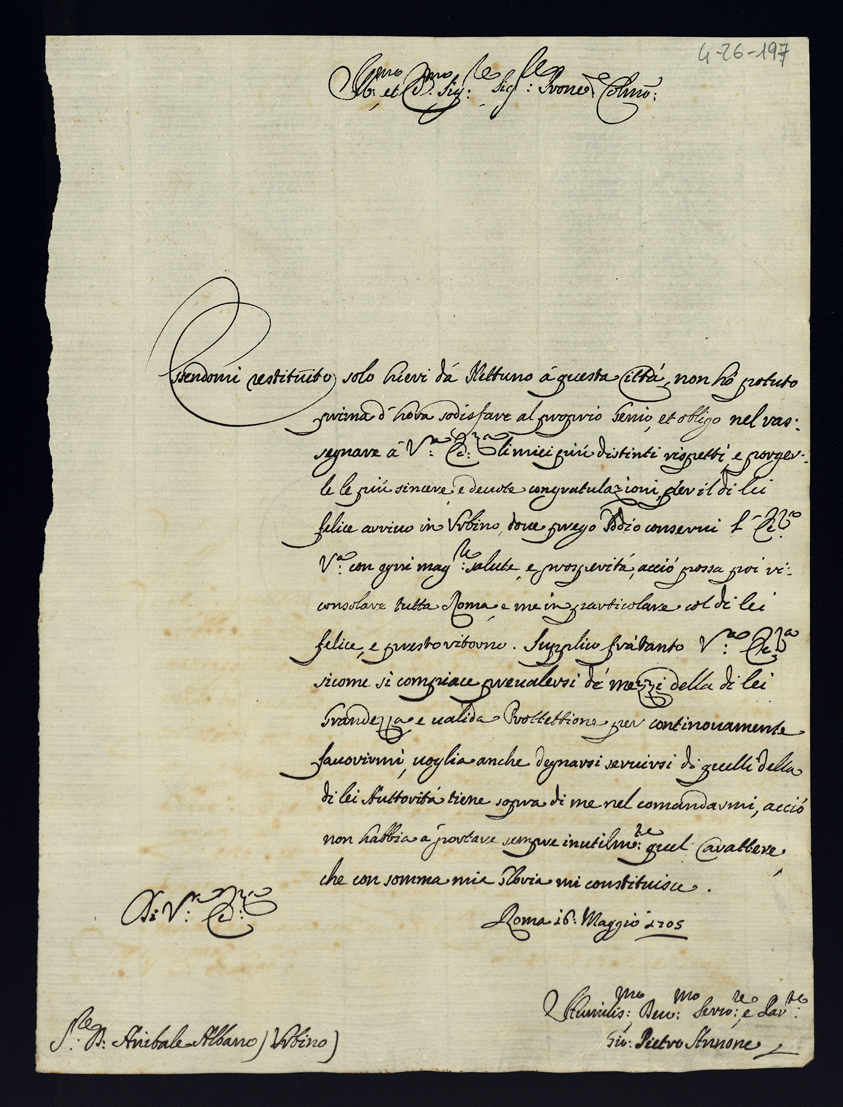 4-26-197
Ill:mo et Ecc:mo Sig:re Sig:re Prone Colmo:
Essendomi restituito solo hieri dà Nettuno à questa Città, non hò potuto
prima d'hora sodisfare al proprio Genio, et obligo nel ras:
segnare à V:ra Ecc:za li miei più distinti rispetti, e porger:
le le più sincere, e devote congratulazioni per il di lei
felice arrivo in Urbino, dove prego Iddio conservi l'Ecc:za
V:ra con ogni mag:re salute, e prosperità, acciò possa poi ri:
consolare tutta Roma, e me in particolare col di lei
felice, e presto ritorno. Supplico frà tanto V:ra Ecc:za
sicome si compiace prevalersi de' mezzi della di lei
Grandezza, e valida Prottettione per continouamente
favorirmi, voglia anche degnarsi servirsi di quelli della
di lei Auttorità tiene sopra di me nel comandarmi, acciò
non habbia à portare sempre inutilm:te quel Carattere,
che con somma mia Gloria mi constituisce.
Di V:ra Ecc:za
Roma 16: Maggio 1705
Humilis:mo Devo:mo Servo:re e
Gio: Pietro Annone
S:re D: Anibale Albano) Urbino)